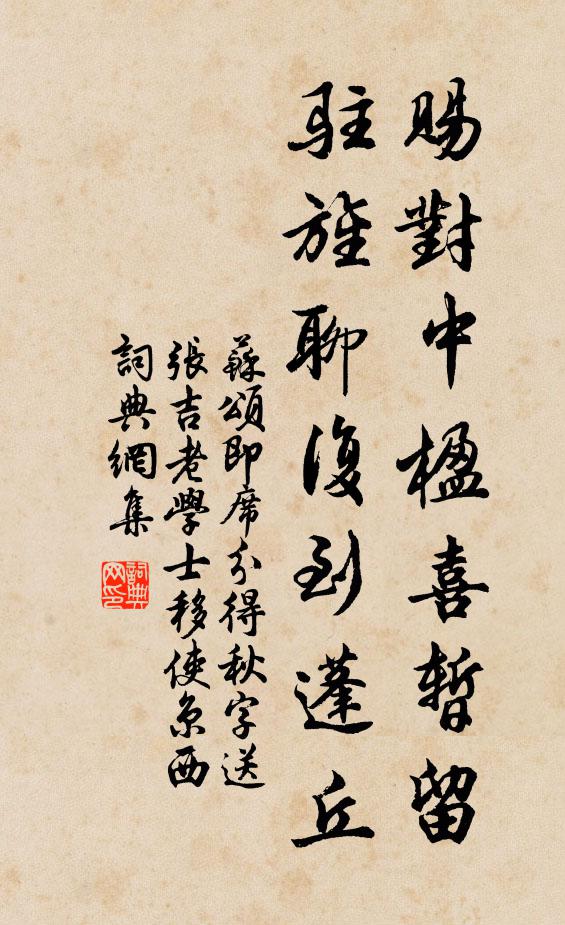 賜對中楹喜暫留
駐旌聊復到蓬丘
蘇頌即席分得秋字送
張吉老學士移使京西
詞典網集
詞典
网印